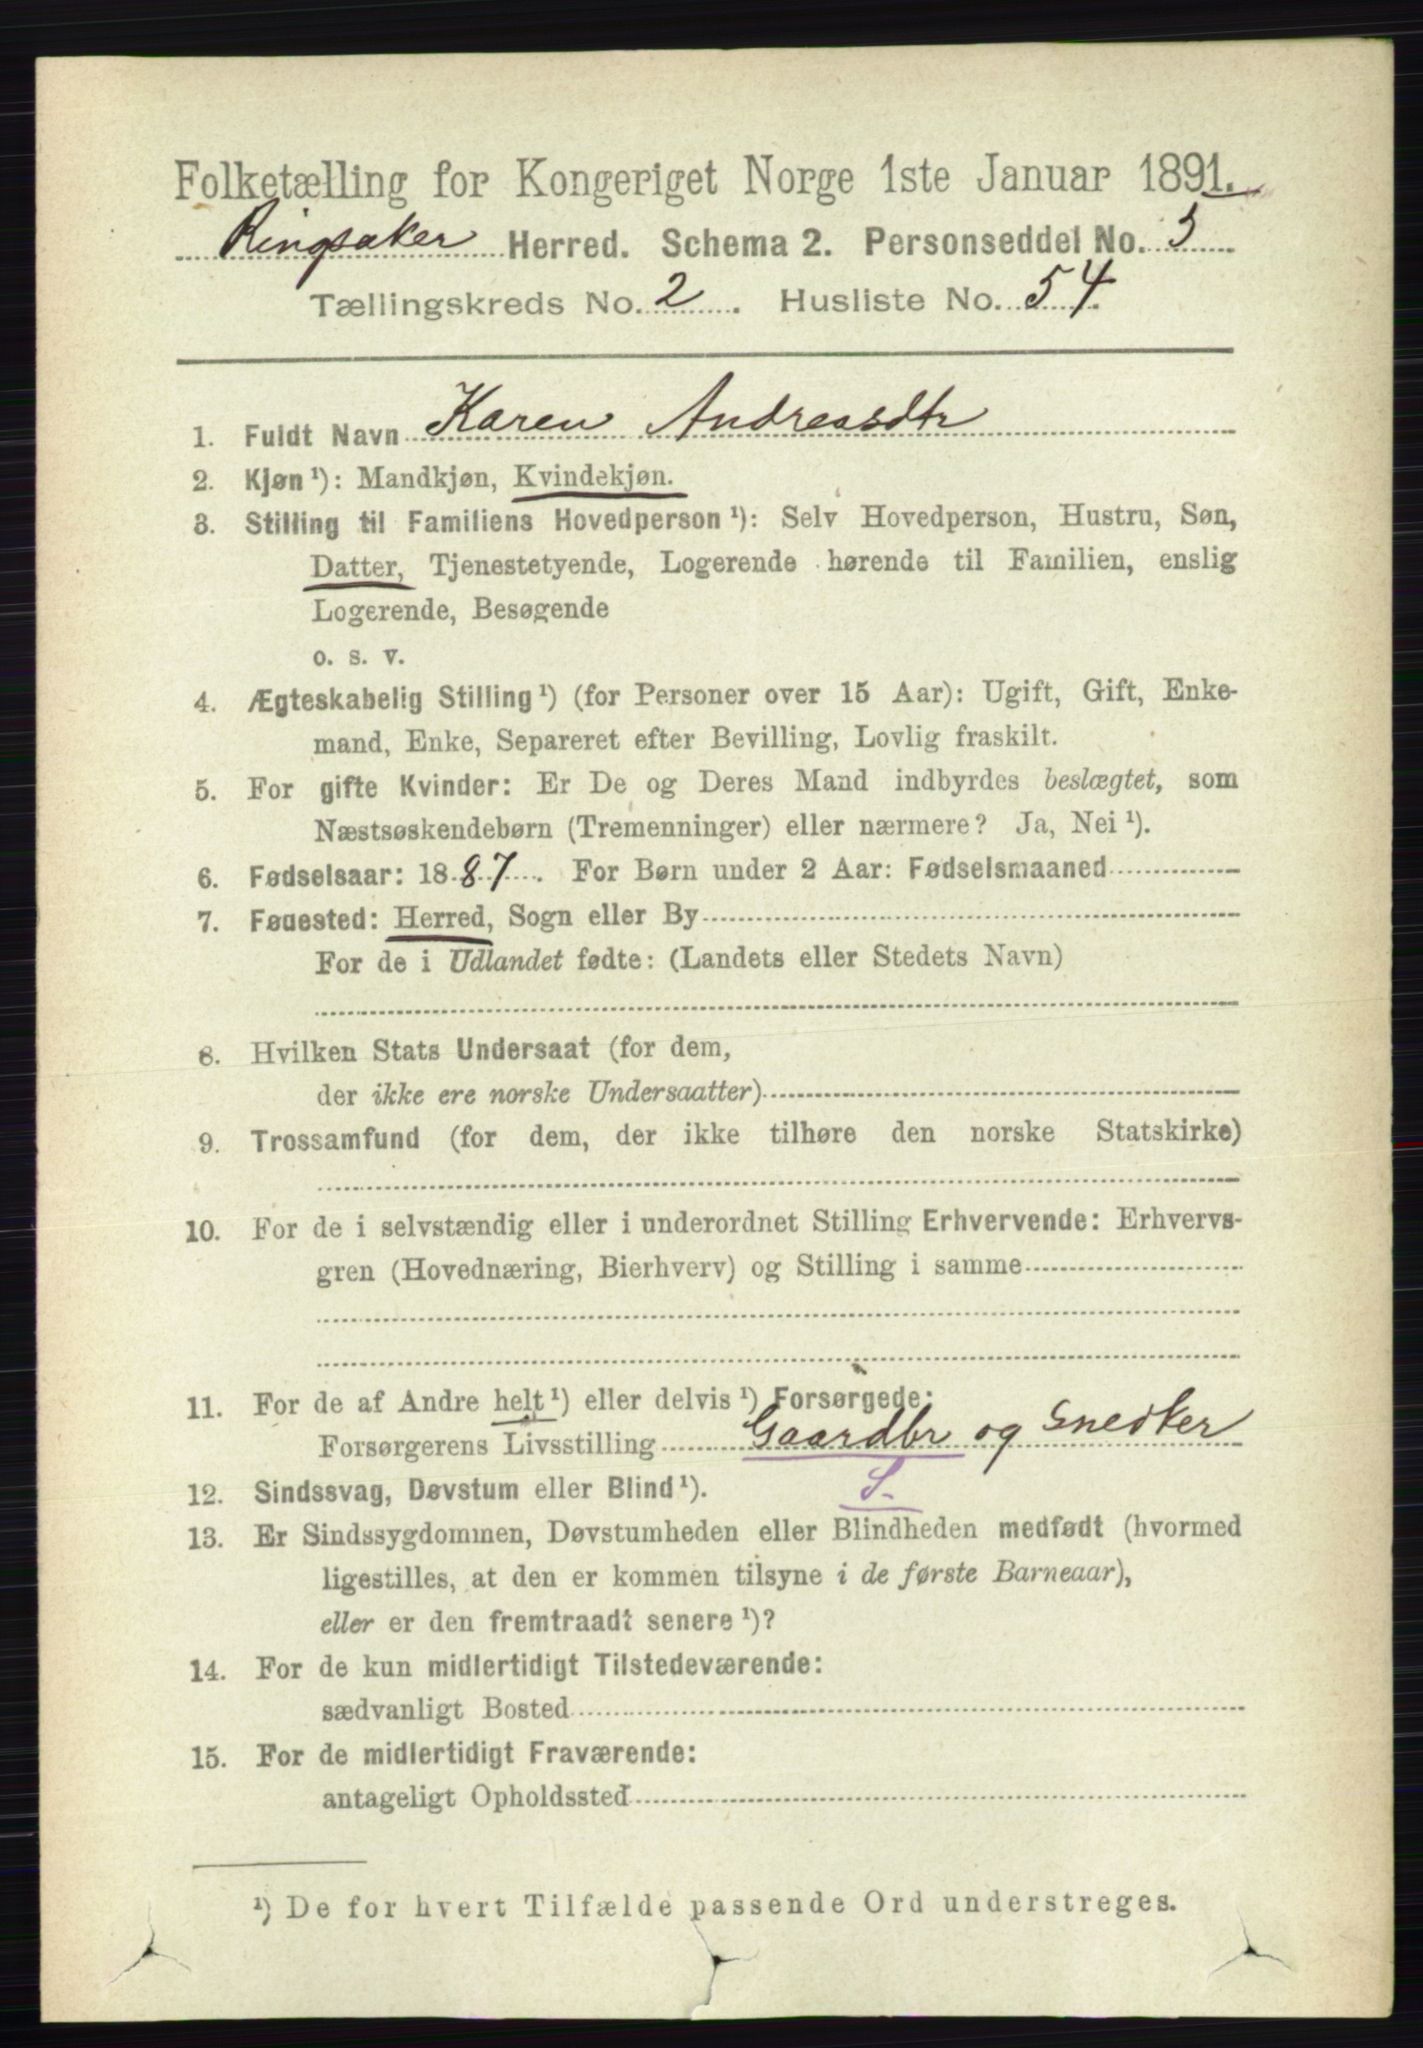 Folketælling for Kongeriget Norge 1ste Januar 1891.
Ringsaker Herred. Schema 2. Personseddel No. 3
Tællingskreds No. 2. Husliste No. 54.
1. Fuldt Navn Karen Andreasdtr
2. Kjøn ¹): Mandkjøn, Kvindekjøn.
3. Stilling til Familiens Hovedperson ¹): Selv Hovedperson, Hustru, Søn,
Datter, Tjenestetyende, Logerende hørende til Familien, enslig
Logerende, Besøgende
o. s. v.
4. Ægteskabelig Stilling ¹) (for Personer over 15 Aar): Ugift, Gift, Enke-
mand, Enke, Separeret efter Bevilling, Lovlig fraskilt.
5. For gifte Kvinder: Er De og Deres Mand indbyrdes beslægtet, som
Næstsøskendebørn (Tremenninger) eller nærmere? Ja, Nei ¹).
6. Fødselsaar: 1887. For Børn under 2 Aar: Fødselsmaaned
7. Fødested: Herred, Sogn eller By
For de i Udlandet fødte: (Landets eller Stedets Navn)
8. Hvilken Stats Undersaat (for dem,
der ikke ere norske Undersaatter)
9. Trossamfund (for dem, der ikke tilhøre den norske Statskirke)
10. For de i selvstændig eller i underordnet Stilling Erhvervende: Erhvervs-
gren (Hovednæring, Bierhverv) og Stilling i samme
11. For de af Andre helt ¹) eller delvis ¹) Forsørgede:
Forsørgerens Livsstilling Gaardbr og Snedker
12. Sindssvag, Døvstum eller Blind ¹). S.
13. Er Sindssygdommen, Døvstumheden eller Blindheden medfødt (hvormed
ligestilles, at den er kommen tilsyne i de første Barneaar),
eller er den fremtraadt senere ¹)?
14. For de kun midlertidigt Tilstedeværende:
sædvanligt Bosted
15. For de midlertidigt Fraværende:
antageligt Opholdssted
¹) De for hvert Tilfælde passende Ord understreges.